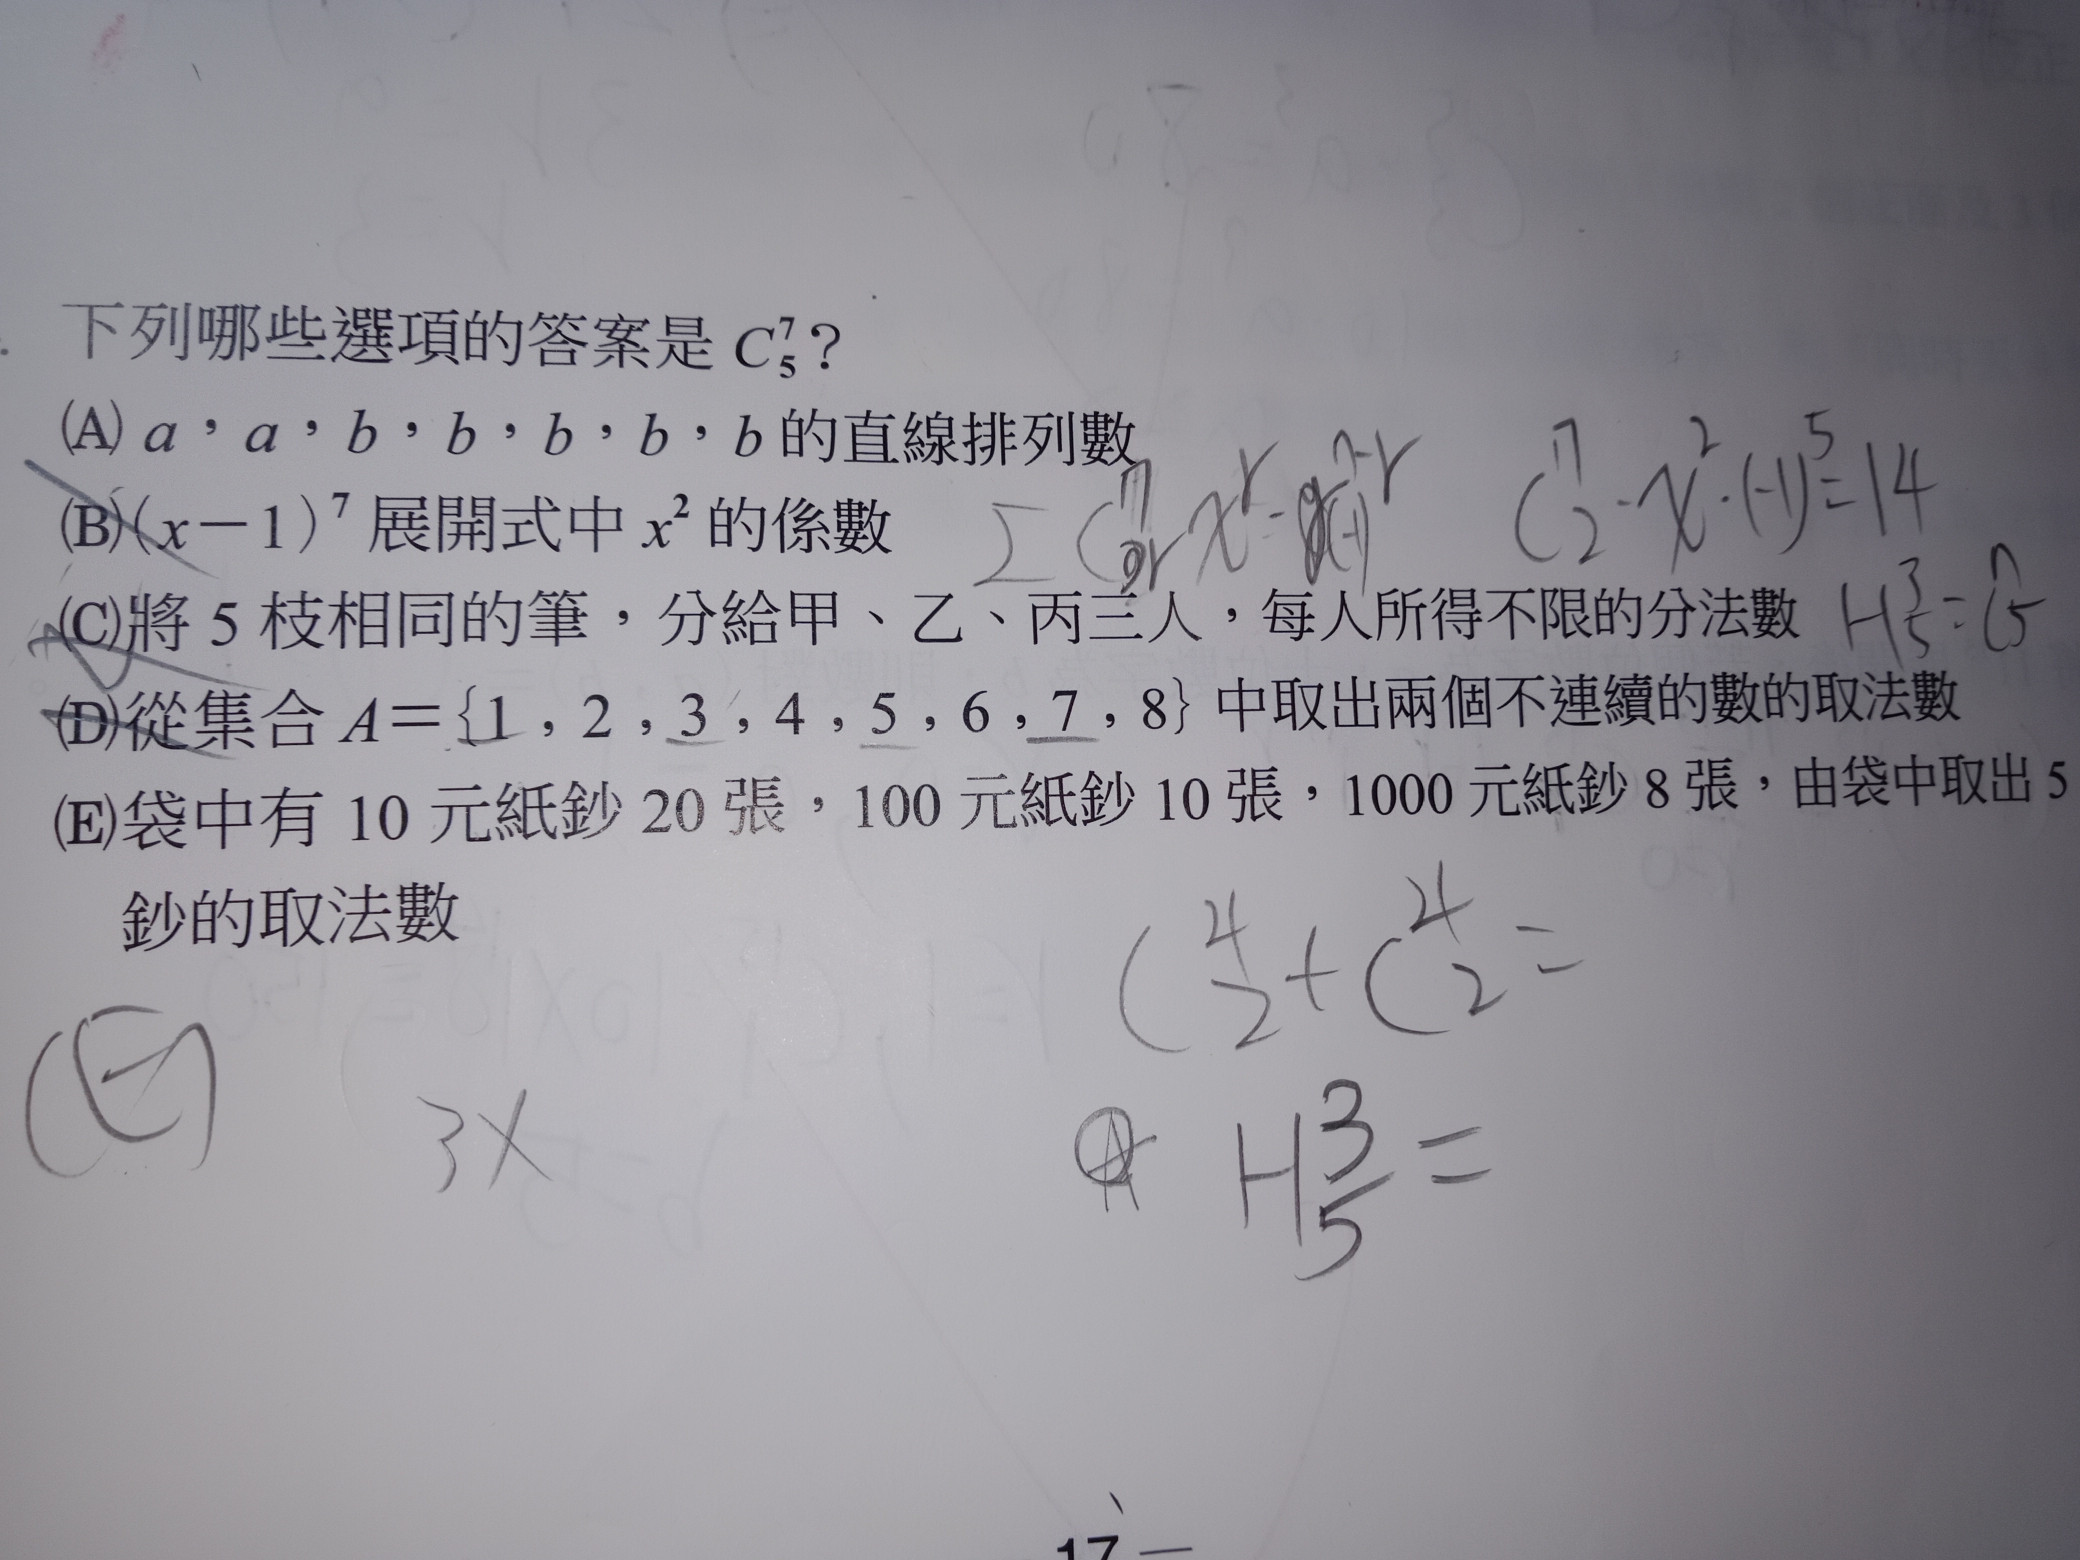 下列哪些選項的答案是 C⁷₅?
(A) a,a,b,b,b,b,b 的直線排列數
(B)(x-1)⁷ 展開式中 x² 的係數
Σ C⁷ᵣ xʳ (-1)⁷⁻ʳ
C⁷₂·x²·(-1)⁵=14
(C)將 5 枝相同的筆,分給甲、乙、丙三人,每人所得不限的分法數
H³₅=C⁷₅
(D)從集合 A={1,2,3,4,5,6,7,8} 中取出兩個不連續的數的取法數
(E)袋中有 10 元紙鈔 20 張,100 元紙鈔 10 張,1000 元紙鈔 8 張,由袋中取出 5
鈔的取法數
C⁴₂+C⁴₂=
(E)
3X
H³₅=
17 —